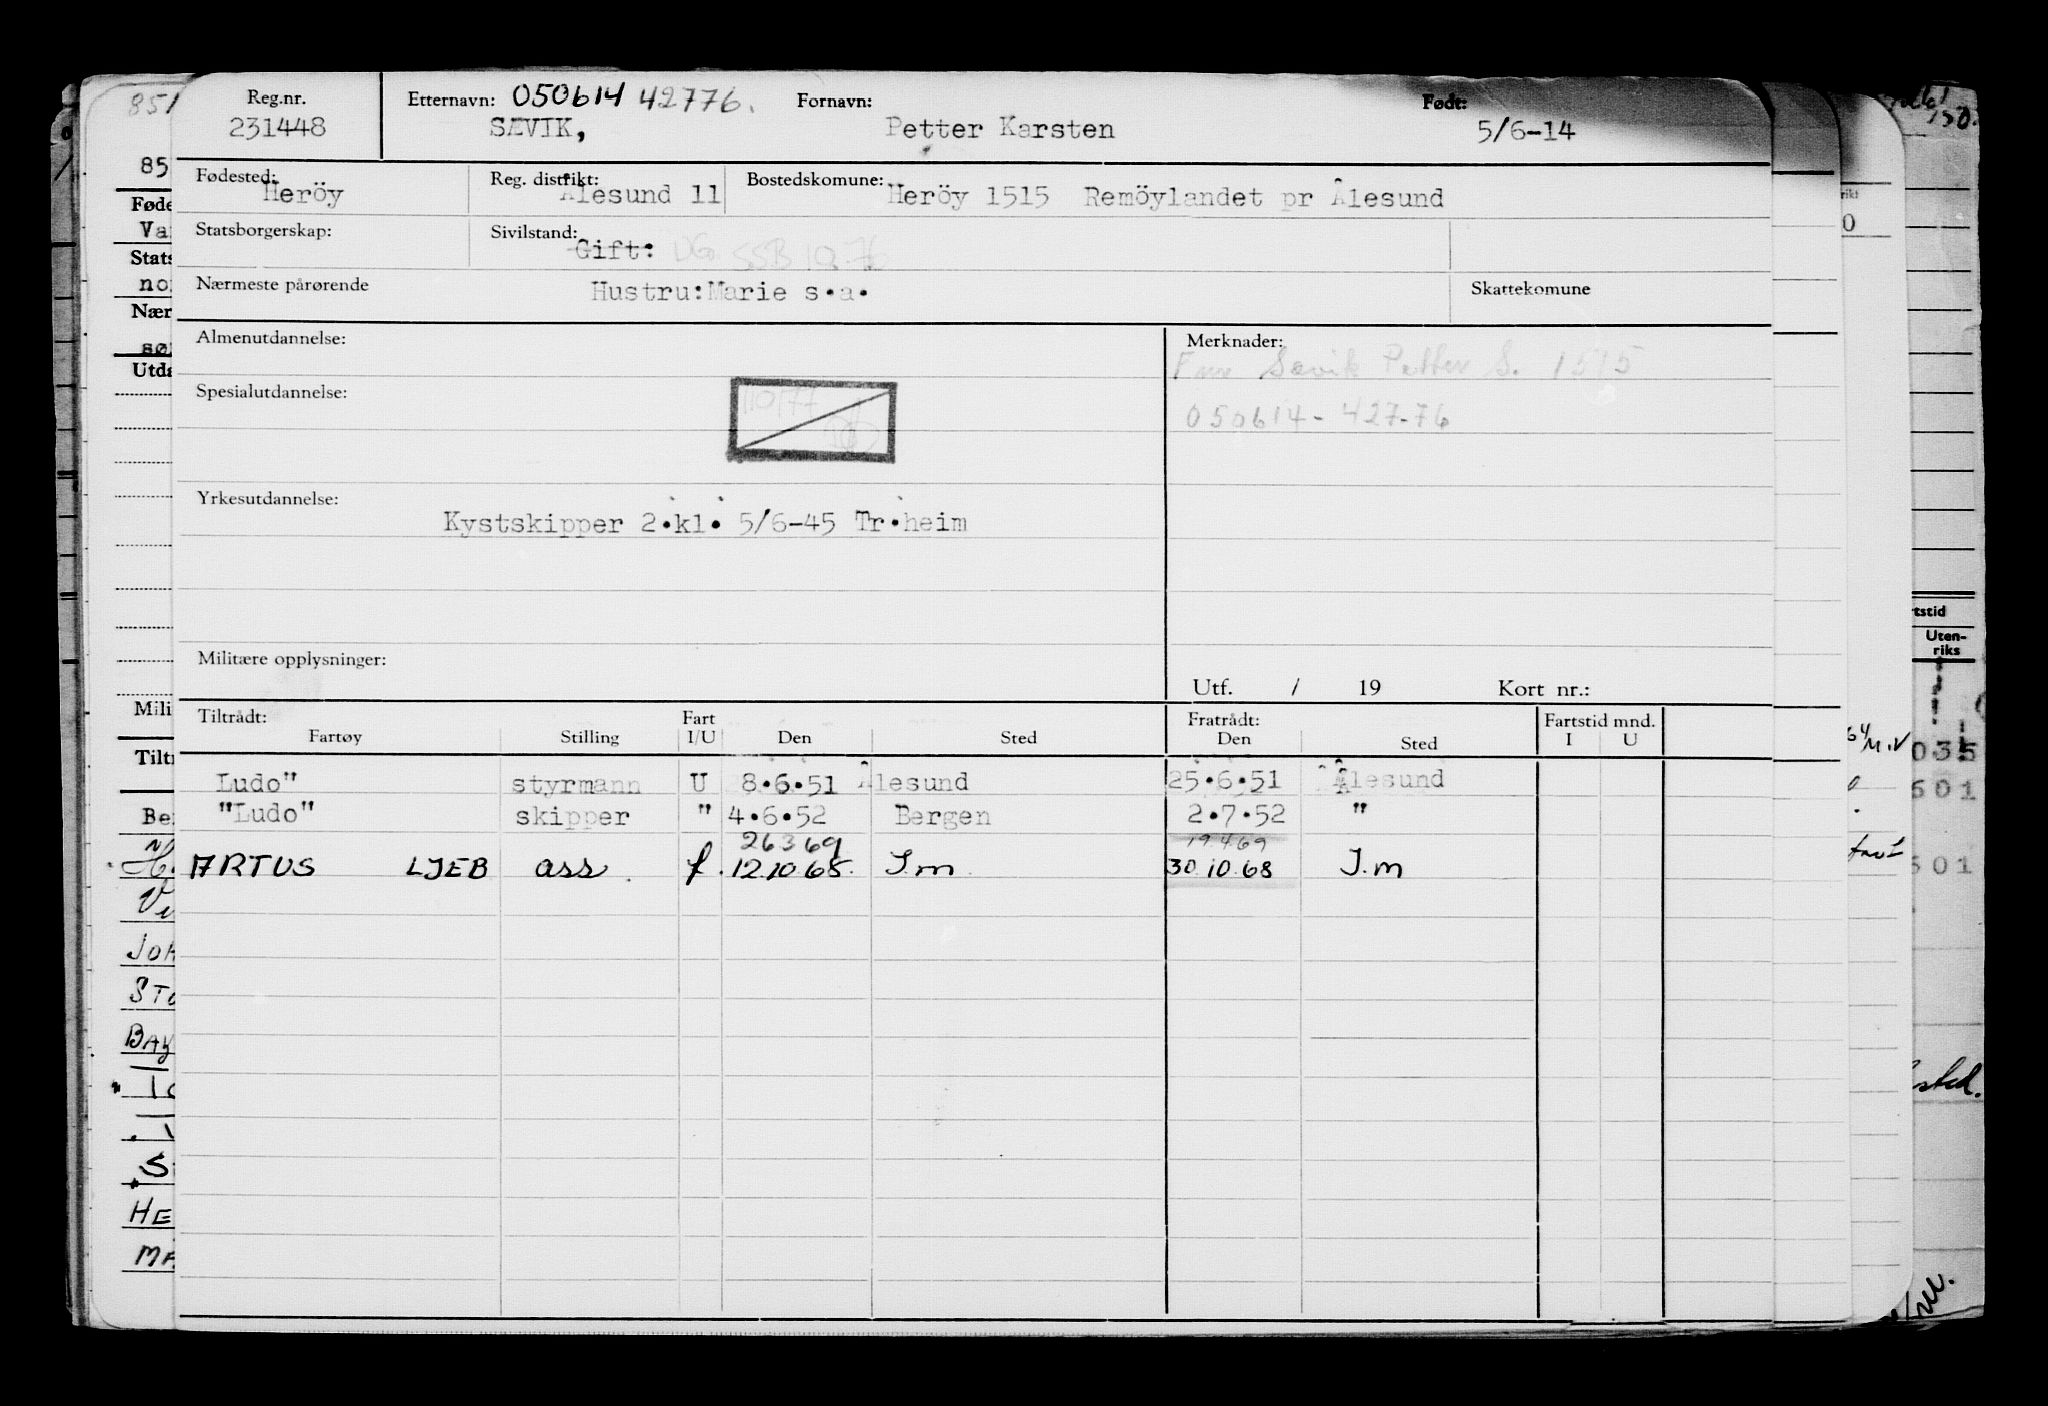 Reg.nr. Etternavn: 050614 42776. Fornavn: Født:
231448 SÆVIK, Petter Karsten 5/6-14
Fødested: Reg. distrikt: Bostedskomune:
Heröy Ålesund 11 Heröy 1515 Remöylandet pr Ålesund
Statsborgerskap: Sivilstand:
Gift: SSB 10.76
Nærmeste pårørende Hustru:Marie s.a. Skattekomune
Almenutdannelse: Merknader:
Sævik Petter S. 1515
Spesialutdannelse:
050614- 427-76
Yrkesutdannelse:
Kystskipper 2.kl. 5/6-45 Tr.heim
Militære opplysninger:
Utf. / 19 Kort nr.:
Tiltrådt: Fart Fratrådt: Fartstid mnd.
Fartøy Stilling I/U Den Sted Den Sted I U
Ludo" styrmann U 8.6.51 Ålesund 25.6.51 Ålesund
"Ludo" skipper " 4.6.52 Bergen 2.7.52 "
26369 19.469
ARTUS LJEB ass. f. 12.10.68. I.m 30.10.68 I.m
851
85
Føde
Va
Stats
no
Nær
sø
Utda
Mili
Tiltr
Be
JOH
STO
BAY
HE
MA
rikt
0
rtstid
Uten-
riks
035
601
601